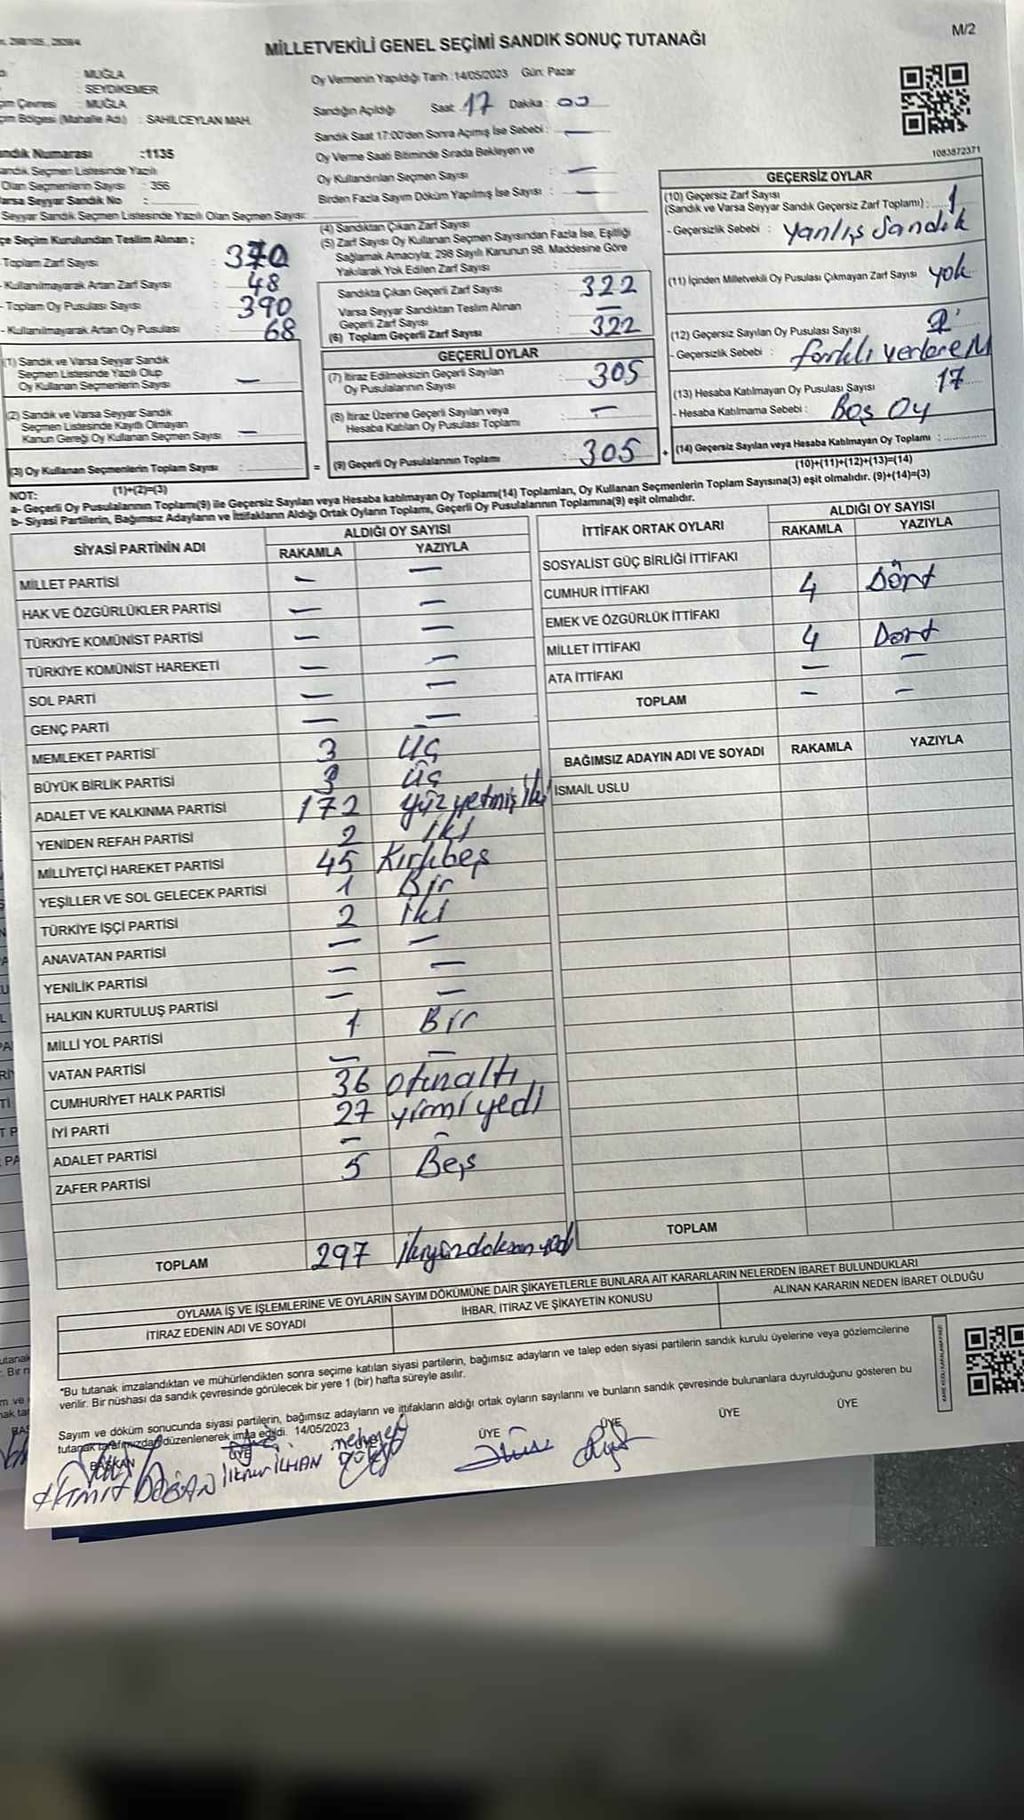 MİLLETVEKİLİ GENEL SEÇİMİ SANDIK SONUÇ TUTANAĞI
M/2
: MUĞLA
: SEYDİKEMER
: MUĞLA
Bölgesi (Mahalle Adı) : SAHİLCEYLAN MAH.
Sandık Numarası :1135
Sandık Seçmen Listesinde Yazılı
Olan Seçmenlerin Sayısı : 356
Varsa Seyyar Sandık No :
Seyyar Sandık Seçmen Listesinde Yazılı Olan Seçmen Sayısı:
Oy Vermenin Yapıldığı Tarih :14/05/2023 Gün: Pazar
Sandığın Açıldığı Saat 17 Dakika : 00
Sandık Saat 17:00'den Sonra Açmış İse Sebebi : —
Oy Verme Saati Bitiminde Sırada Bekleyen ve
Oy Kullandırılan Seçmen Sayısı —
Birden Fazla Sayım Döküm Yapılmış İse Sayısı : —
1083872371
Seçim Kurulundan Teslim Alınan ;
-Toplam Zarf Sayısı : 370
- Kullanılmayarak Artan Zarf Sayısı : 48
- Toplam Oy Pusulası Sayısı : 390
- Kullanılmayarak Artan Oy Pusulası : 68
(1) Sandık ve Varsa Seyyar Sandık
Seçmen Listesinde Yazılı Olup
Oy Kullanan Seçmenlerin Sayısı —
(2) Sandık ve Varsa Seyyar Sandık
Seçmen Listesinde Kayıtlı Olmayan
Kanun Gereği Oy Kullanan Seçmen Sayısı —
(3) Oy Kullanan Seçmenlerin Toplam Sayısı :
(1)+(2)=(3)
(4) Sandıktan Çıkan Zarf Sayısı :
(5) Zarf Sayısı Oy Kullanan Seçmen Sayısından Fazla İse, Eşitliği
Sağlamak Amacıyla; 298 Sayılı Kanunun 98. Maddesine Göre
Yakılarak Yok Edilen Zarf Sayısı :
Sandıkta Çıkan Geçerli Zarf Sayısı : 322
Varsa Seyyar Sandıktan Teslim Alınan
Geçerli Zarf Sayısı : —
(6) Toplam Geçerli Zarf Sayısı : 322
GEÇERLİ OYLAR
(7) İtiraz Edilmeksizin Geçerli Sayılan
Oy Pusulalarının Sayısı : 305
(8) İtiraz Üzerine Geçerli Sayılan veya
Hesaba Katılan Oy Pusulası Toplamı : —
= (9) Geçerli Oy Pusulalarının Toplamı : 305
GEÇERSİZ OYLAR
(10) Geçersiz Zarf Sayısı
(Sandık ve Varsa Seyyar Sandık Geçersiz Zarf Toplamı) : 1
- Geçersizlik Sebebi : yanlış Sandık
(11) İçinden Milletvekili Oy Pusulası Çıkmayan Zarf Sayısı yok
(12) Geçersiz Sayılan Oy Pusulası Sayısı
- Geçersizlik Sebebi : farklı yerlere M
(13) Hesaba Katılmayan Oy Pusulası Sayısı 17
- Hesaba Katılmama Sebebi : Boş Oy
+ (14) Geçersiz Sayılan veya Hesaba Katılmayan Oy Toplamı :
(10)+(11)+(12)+(13)=(14)
NOT:
a- Geçerli Oy Pusulalarının Toplamı(9) ile Geçersiz Sayılan veya Hesaba katılmayan Oy Toplamı(14) Toplamları, Oy Kullanan Seçmenlerin Toplam Sayısına(3) eşit olmalıdır. (9)+(14)=(3)
b- Siyasi Partilerin, Bağımsız Adayların ve İttifakların Aldığı Ortak Oyların Toplamı, Geçerli Oy Pusulalarının Toplamına(9) eşit olmalıdır.
SİYASİ PARTİNİN ADI ALDIĞI OY SAYISI
RAKAMLA YAZIYLA
MİLLET PARTİSİ — —
HAK VE ÖZGÜRLÜKLER PARTİSİ — —
TÜRKİYE KOMÜNİST PARTİSİ — —
TÜRKİYE KOMÜNİST HAREKETİ — —
SOL PARTİ — —
GENÇ PARTİ — —
MEMLEKET PARTİSİ 3 Üç
BÜYÜK BİRLİK PARTİSİ 3 Üç
ADALET VE KALKINMA PARTİSİ 172 yüz yetmiş iki
YENİDEN REFAH PARTİSİ 2 iki
MİLLİYETÇİ HAREKET PARTİSİ 45 Kırkbeş
YEŞİLLER VE SOL GELECEK PARTİSİ 1 Bir
TÜRKİYE İŞÇİ PARTİSİ 2 iki
ANAVATAN PARTİSİ — —
YENİLİK PARTİSİ — —
HALKIN KURTULUŞ PARTİSİ — —
MİLLİ YOL PARTİSİ 1 Bir
VATAN PARTİSİ — —
CUMHURİYET HALK PARTİSİ 36 otuzaltı
İYİ PARTİ 27 yirmi yedi
ADALET PARTİSİ — —
ZAFER PARTİSİ 5 Beş
TOPLAM 297 ikiyüzdoksan yedi
İTTİFAK ORTAK OYLARI ALDIĞI OY SAYISI
RAKAMLA YAZIYLA
SOSYALİST GÜÇ BİRLİĞİ İTTİFAKI
CUMHUR İTTİFAKI 4 Dört
EMEK VE ÖZGÜRLÜK İTTİFAKI
MİLLET İTTİFAKI 4 Dört
ATA İTTİFAKI — —
TOPLAM — —
BAĞIMSIZ ADAYIN ADI VE SOYADI RAKAMLA YAZIYLA
İSMAİL USLU
TOPLAM
OYLAMA İŞ VE İŞLEMLERİNE VE OYLARIN SAYIM DÖKÜMÜNE DAİR ŞİKAYETLERLE BUNLARA AİT KARARLARIN NELERDEN İBARET BULUNDUKLARI
İTİRAZ EDENİN ADI VE SOYADI İHBAR, İTİRAZ VE ŞİKAYETİN KONUSU ALINAN KARARIN NEDEN İBARET OLDUĞU
*Bu tutanak imzalandıktan ve mühürlendikten sonra seçime katılan siyasi partilerin, bağımsız adayların ve talep eden siyasi partilerin sandık kurulu üyelerine veya gözlemcilerine
verilir. Bir nüshası da sandık çevresinde görülecek bir yere 1 (bir) hafta süreyle asılır.
Sayım ve döküm sonucunda siyasi partilerin, bağımsız adayların ve ittifakların aldığı ortak oyların sayılarını ve bunların sandık çevresinde bulunanlara duyrulduğunu gösteren bu
tutanak tarafımızdan düzenlenerek imza edildi. 14/05/2023
BAŞKAN ÜYE ÜYE ÜYE ÜYE ÜYE
İlknur İLHAN